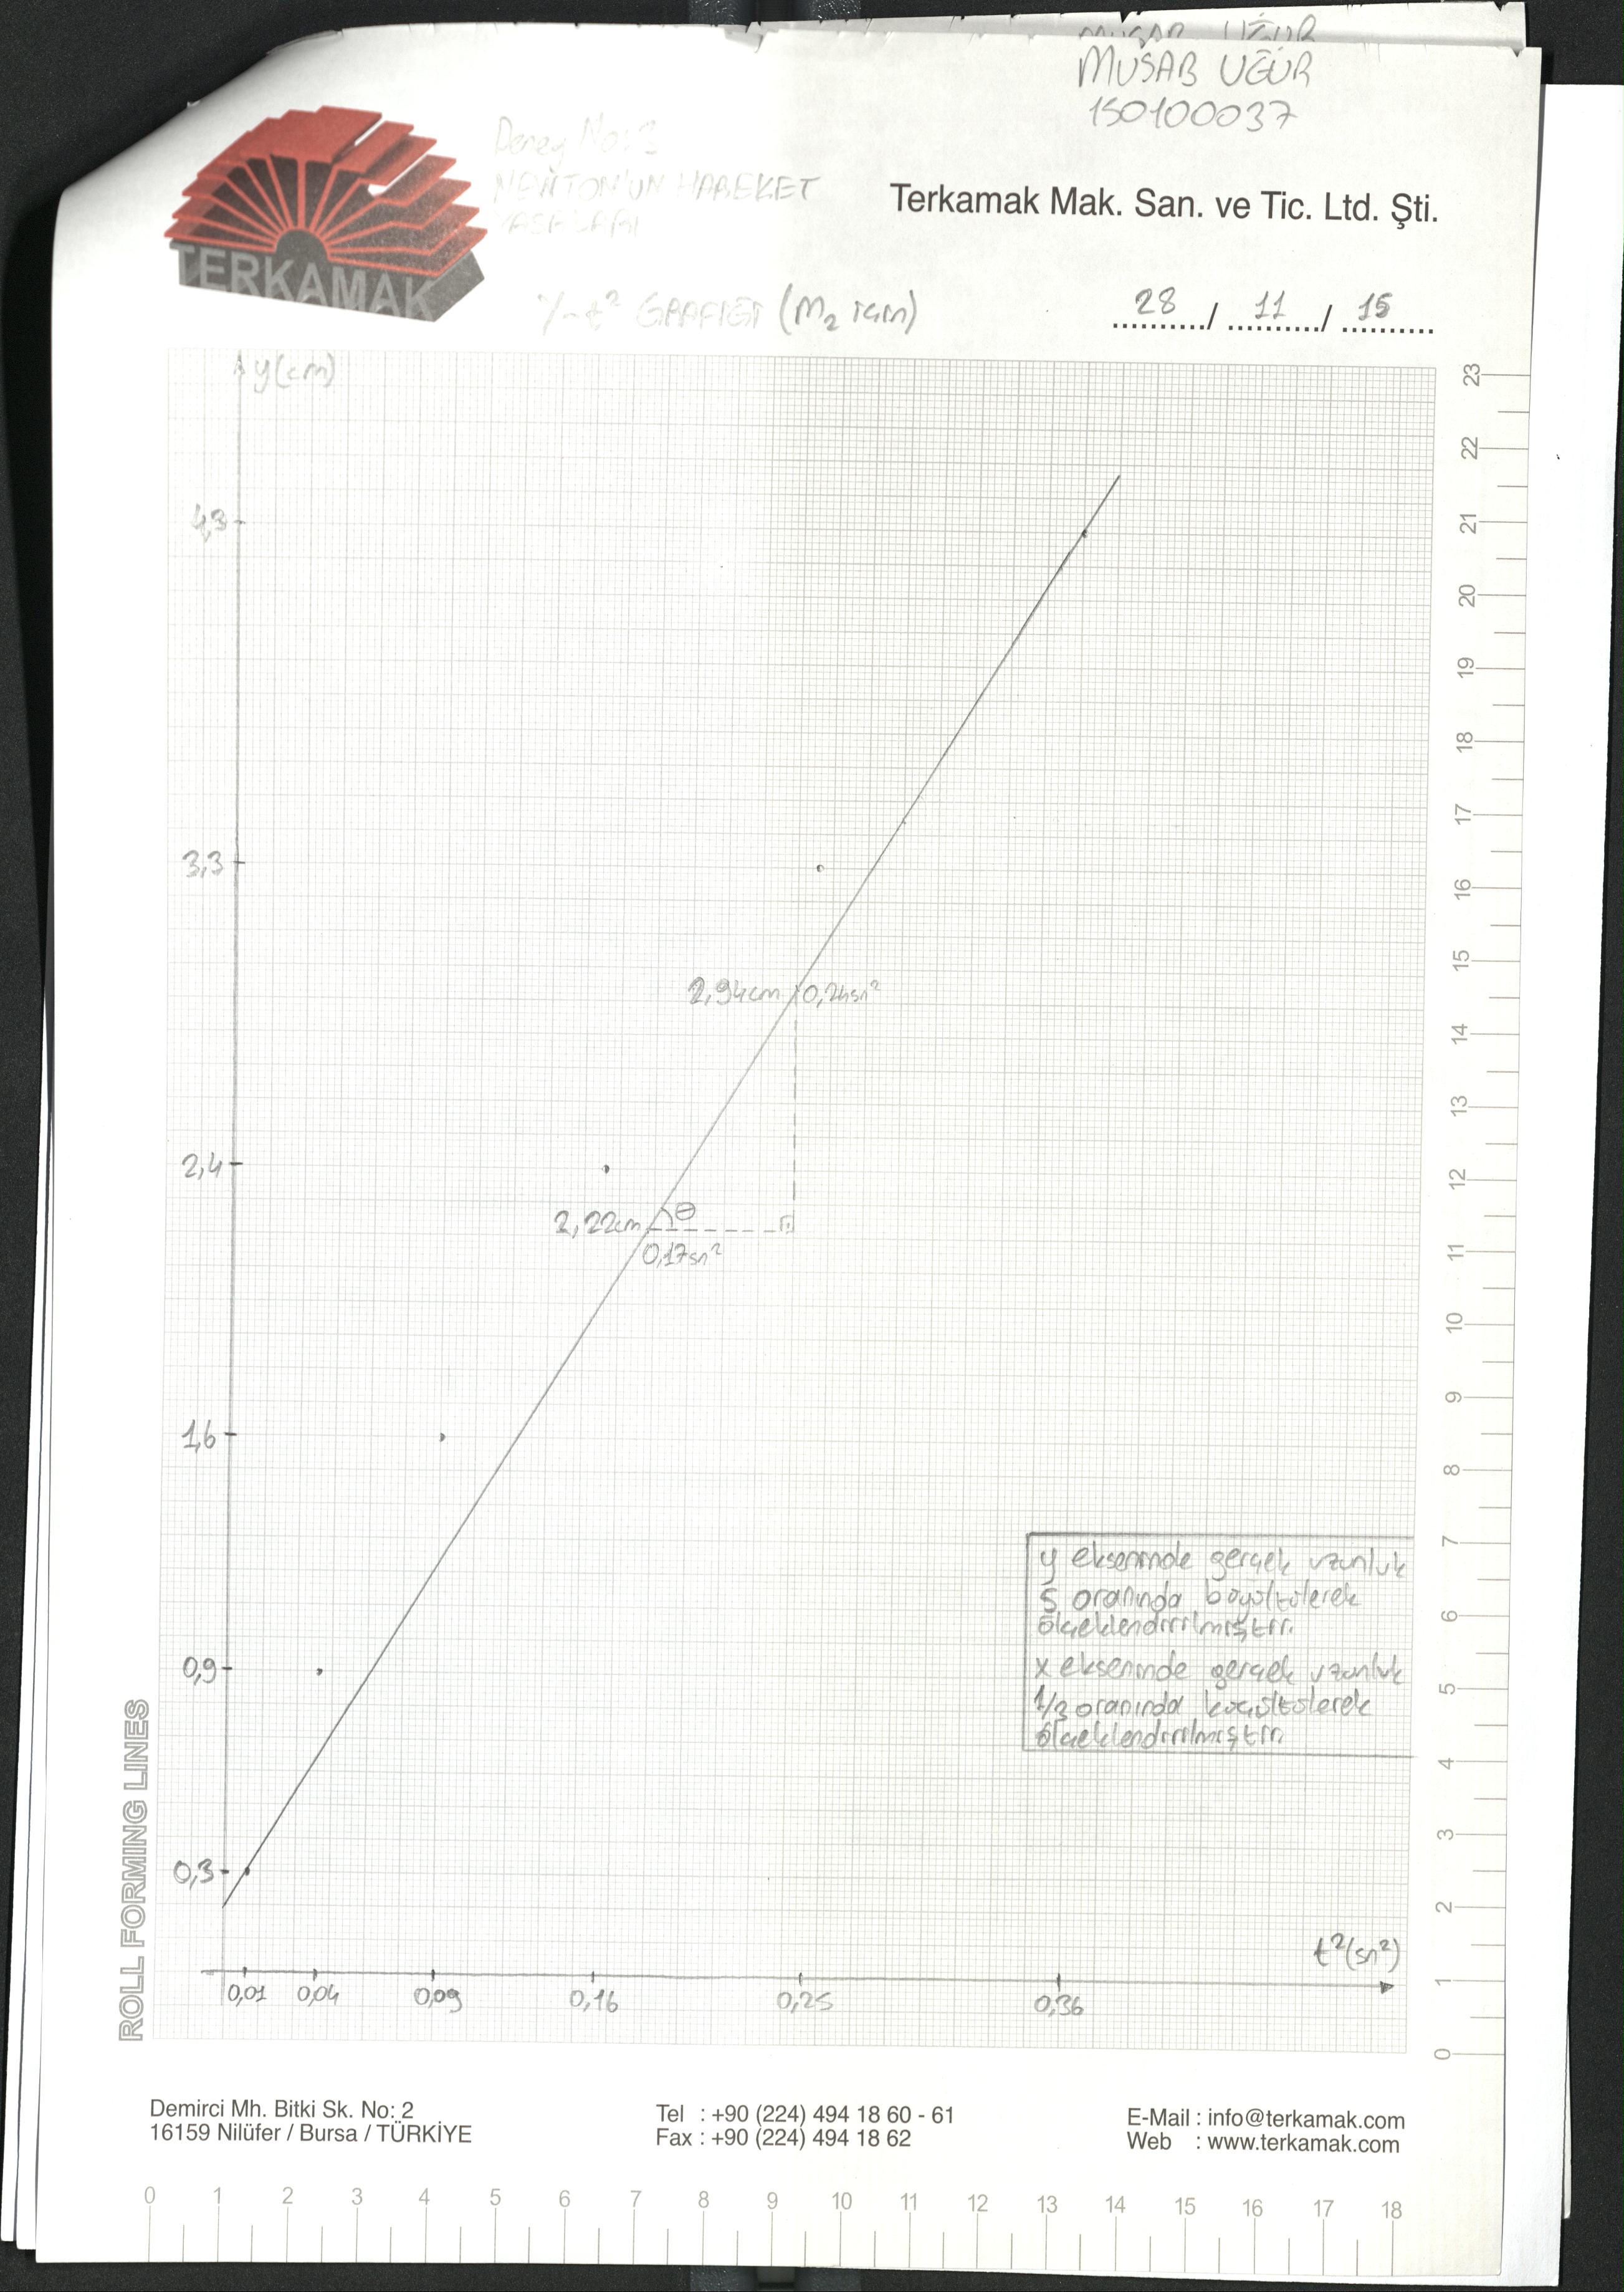 MUSAB UĞUR
MUSAB UĞUR
150100037
Deney No: 2
NEWTON'UN HAREKET
YASALARI
TERKAMAK
Terkamak Mak. San. ve Tic. Ltd. Şti.
y-t² GRAFİĞİ (m₂ için)
28 / 11 / 15
y(cm)
4,3
3,3
2,94cm 0,24sn²
2,4
2,22cm θ
0,17sn²
1,6
0,9
0,3
y ekseninde gerçek uzunluk
5 oranında büyültülerek
ölçeklendirilmiştir.
x ekseninde gerçek uzunluk
1/3 oranında küçültülerek
ölçeklendirilmiştir.
t²(sn²)
0,01 0,04 0,09 0,16 0,25 0,36
23
22
21
20
19
18
17
16
15
14
13
12
11
10
9
8
7
6
5
4
3
2
1
0
ROLL FORMING LINES
Demirci Mh. Bitki Sk. No: 2
16159 Nilüfer / Bursa / TÜRKİYE
Tel : +90 (224) 494 18 60 - 61
Fax : +90 (224) 494 18 62
E-Mail : info@terkamak.com
Web : www.terkamak.com
0 1 2 3 4 5 6 7 8 9 10 11 12 13 14 15 16 17 18